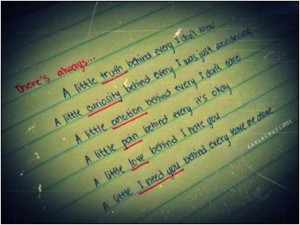 There's always...
A little truth behind every I don't know
A little curiosity behind every I was just wondering
A little emotion behind every I don't care
A little pain behind every it's okay
A little love behind I hate you
A little I need you behind every leave me alone